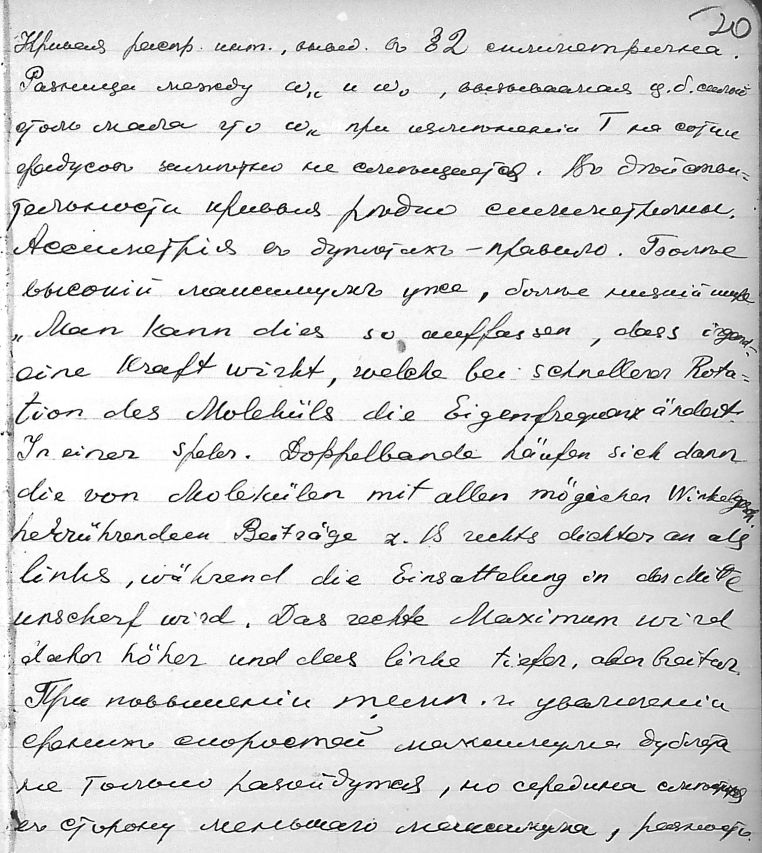 20
Кривая распр. инт., вывед. въ §2 симметрична.
Разница между ω₁₁ и ω₀, вызываемая ц.б. силой
столь мала что ω₁₁ при измѣненіи T на сотни
градусовъ замѣтно не смѣщается. Въ дѣйстви=
тельности кривыя рѣдко симметричны.
Ассиметрія въ дублетахъ – правило. Болѣе
высокій максимумъ уже, болѣе низкій шире
„Man kann dies so auffassen, dass irgend=
eine Kraft wirkt, welche bei schnellerer Rota=
tion des Moleküls die Eigenfrequenz ändert.
In einer spektr. Doppelbande häufen sich dann
die von Molekülen mit allen mögichen Winkelgesch.
herrührendeen Beiträge z. B rechts dichter an als
links, während die Einsattelung in der Mitte
unscharf wird. Das rechte Maximum wird
daher höher und das linke tiefer, aber breiter.
При повышеніи темп. и увеличеніи
средних скоростей максимума дублета
не только разойдутся, но середина смѣстится
въ сторону меньшаго максимума, разность